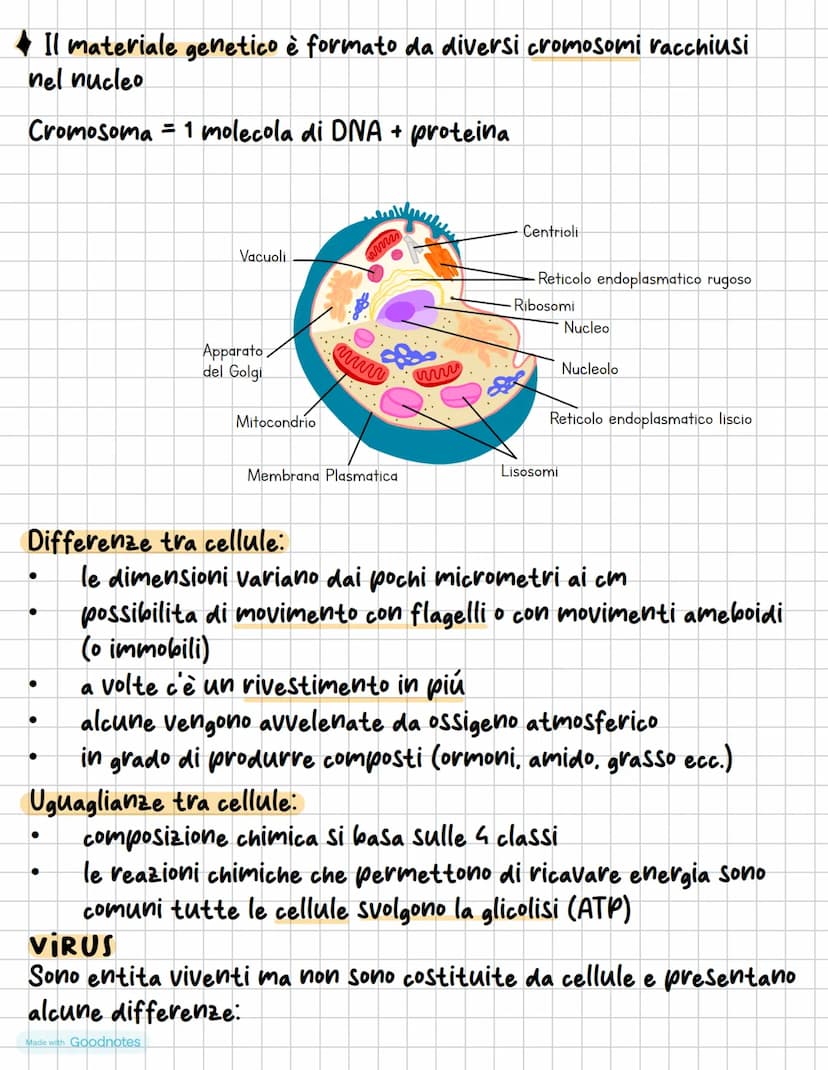 Il materiale genetico è formato da diversi cromosomi racchiusi
nel nucleo
Cromosoma = 1 molecola di DNA + proteina
Centrioli
Vacuoli
Reticolo endoplasmatico rugoso
Ribosomi
Nucleo
Apparato
del Golgi
Nucleolo
Mitocondrio
Reticolo endoplasmatico liscio
Membrana Plasmatica
Lisosomi
Differenze tra cellule:
• le dimensioni variano dai pochi micrometri ai cm
• possibilita di movimento con flagelli o con movimenti ameboidi
(o immobili)
• a volte c'è un rivestimento in piú
• alcune vengono avvelenate da ossigeno atmosferico
• in grado di produrre composti (ormoni, amido, grasso ecc.)
Uguaglianze tra cellule:
• composizione chimica si basa sulle 4 classi
• le reazioni chimiche che permettono di ricavare energia sono
comuni tutte le cellule svolgono la glicolisi (ATP)
VIRUS
Sono entita viventi ma non sono costituite da cellule e presentano
alcune differenze:
Made with Goodnotes